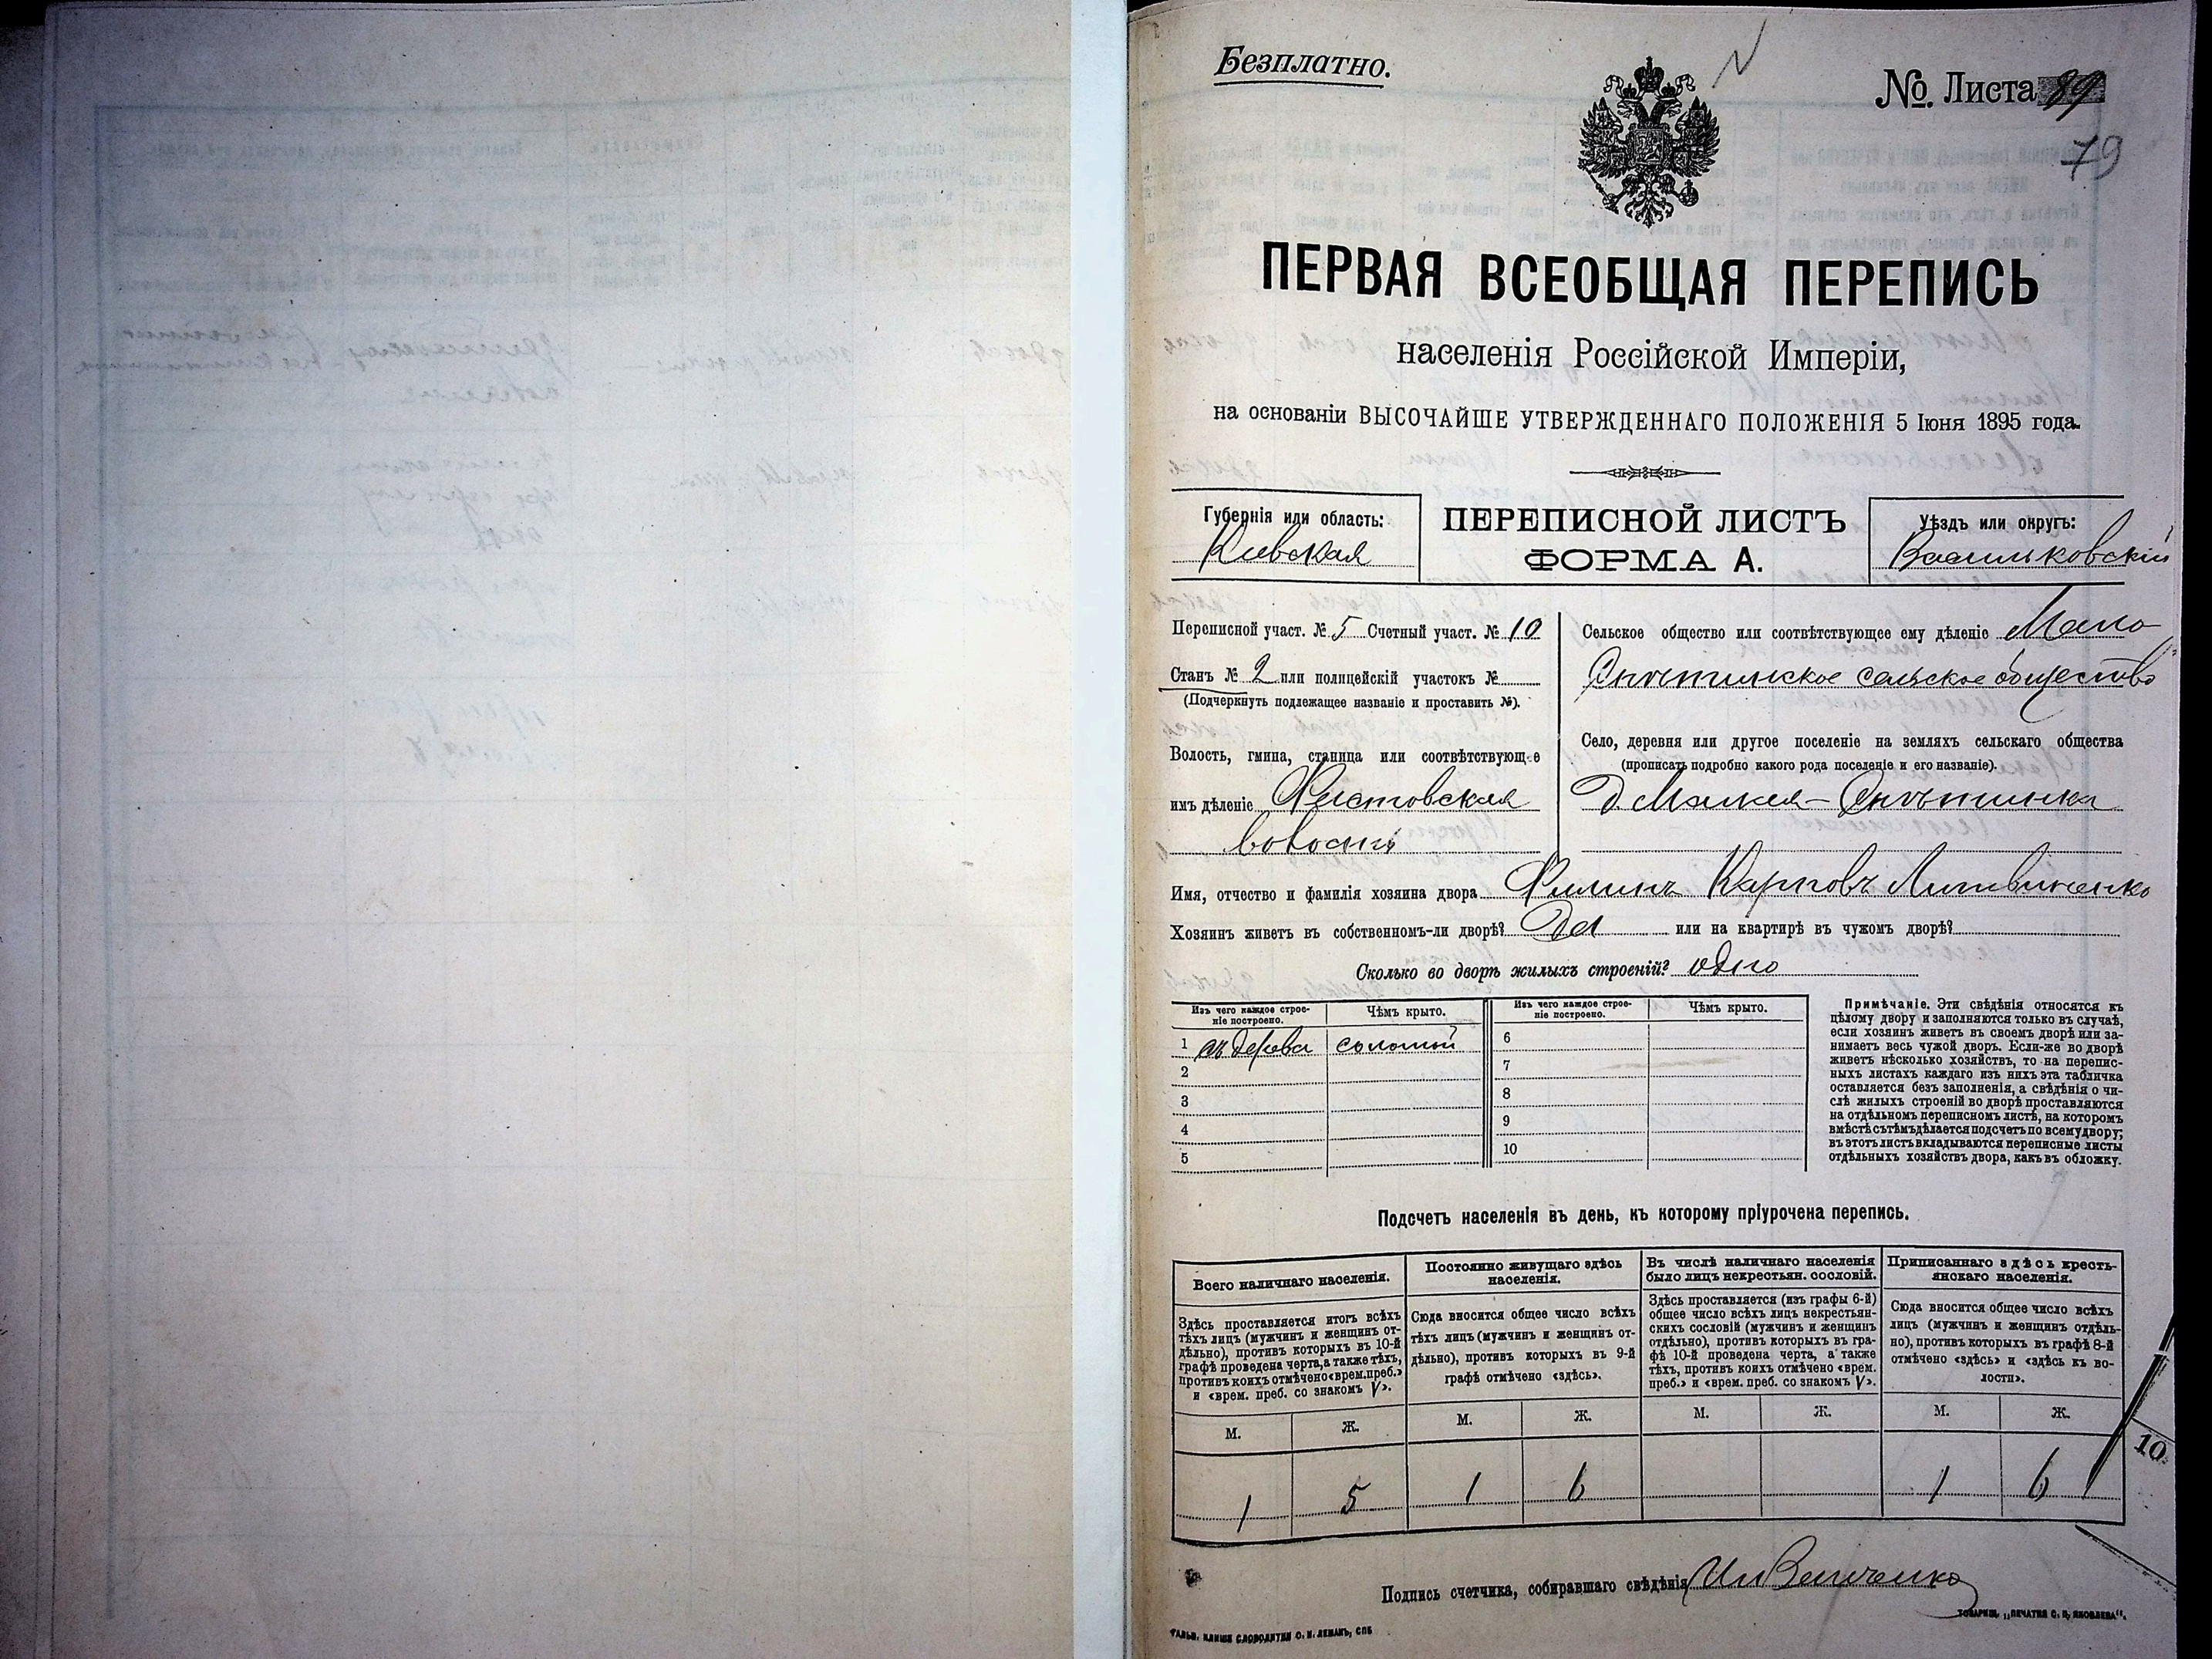 Безплатно.
№ Листа 89
79
ПЕРВАЯ ВСЕОБЩАЯ ПЕРЕПИСЬ
населенія Россійской Имперіи,
на основаніи ВЫСОЧАЙШЕ УТВЕРЖДЕННАГО ПОЛОЖЕНІЯ 5 Іюня 1895 года.
Губернія или область:
Кіевская
ПЕРЕПИСНОЙ ЛИСТЪ
ФОРМА А.
Уѣздъ или округъ:
Васильковскій
Переписной участ. № 5 Счетный участ. № 10
Станъ № 2 или полицейскій участокъ №
(Подчеркнуть подлежащее названіе и проставить №).
Волость, гмина, станица или соотвѣтствующе
имъ дѣленіе Фастовская
волость
Сельское общество или соотвѣтствующее ему дѣленіе Мало-
Снѣтинское сельское общество
Село, деревня или другое поселеніе на земляхъ сельскаго общества
(прописать подробно какого рода поселеніе и его названіе).
д. Малая-Снѣтинка
Имя, отчество и фамилія хозяина двора Филипъ Карповъ Литвиненко
Хозяинъ живетъ въ собственномъ-ли дворѣ? Да или на квартирѣ въ чужомъ дворѣ?
Сколько во дворѣ жилыхъ строеній? одно
Изъ чего каждое строе-
ніе построено.
Чѣмъ крыто.
Изъ чего каждое строе-
ніе построено.
Чѣмъ крыто.
1 дерева соломой
2
3
4
5
6
7
8
9
10
Примѣчаніе. Эти свѣдѣнія относятся къ
цѣлому двору и заполняются только въ случаѣ,
если хозяинъ живетъ въ своемъ дворѣ или за-
нимаетъ весь чужой дворъ. Если-же во дворѣ
живетъ нѣсколько хозяйствъ, то на перепис-
ныхъ листахъ каждаго изъ нихъ эта табличка
оставляется безъ заполненія, а свѣдѣнія о чи-
слѣ жилыхъ строеній во дворѣ проставляются
на отдѣльномъ переписномъ листѣ, на которомъ
вмѣстѣ съ тѣмъ дѣлается подсчетъ по всему двору;
въ этотъ листъ вкладываются переписные листы
отдѣльныхъ хозяйствъ двора, какъ въ обложку.
Подсчетъ населенія въ день, къ которому пріурочена перепись.
Всего наличнаго населенія.
Здѣсь проставляется итогъ всѣхъ
тѣхъ лицъ (мужчинъ и женщинъ от-
дѣльно), противъ которыхъ въ 10-й
графѣ проведена черта, а также тѣхъ,
противъ коихъ отмѣчено «врем. преб.»
и «врем. преб. со знакомъ V».
М. Ж.
1 5
Постоянно живущаго здѣсь
населенія.
Сюда вносится общее число всѣхъ
тѣхъ лицъ (мужчинъ и женщинъ от-
дѣльно), противъ которыхъ въ 9-й
графѣ отмѣчено «здѣсь».
М. Ж.
1 6
Въ числѣ наличнаго населенія
было лицъ некрестьян. сословій.
Здѣсь проставляется (изъ графы 6-й)
общее число всѣхъ лицъ некрестьян-
скихъ сословій (мужчинъ и женщинъ
отдѣльно), противъ которыхъ въ гра-
фѣ 10-й проведена черта, а также
тѣхъ, противъ коихъ отмѣчено «врем.
преб.» и «врем. преб. со знакомъ V».
М. Ж.
Приписаннаго здѣсь кресть-
янскаго населенія.
Сюда вносится общее число всѣхъ
лицъ (мужчинъ и женщинъ отдѣль-
но), противъ которыхъ въ графѣ 8-й
отмѣчено «здѣсь» и «здѣсь къ во-
лости».
М. Ж.
1 6
10
Подпись счетчика, собиравшаго свѣдѣнія
ТОВАРИЩ. „ПЕЧАТНЯ С. П. ЯКОВЛЕВА".
ГАЛЬВ. КЛИШЕ СЛОВОЛИТНИ О. И. ЛЕМАНЪ, СПБ